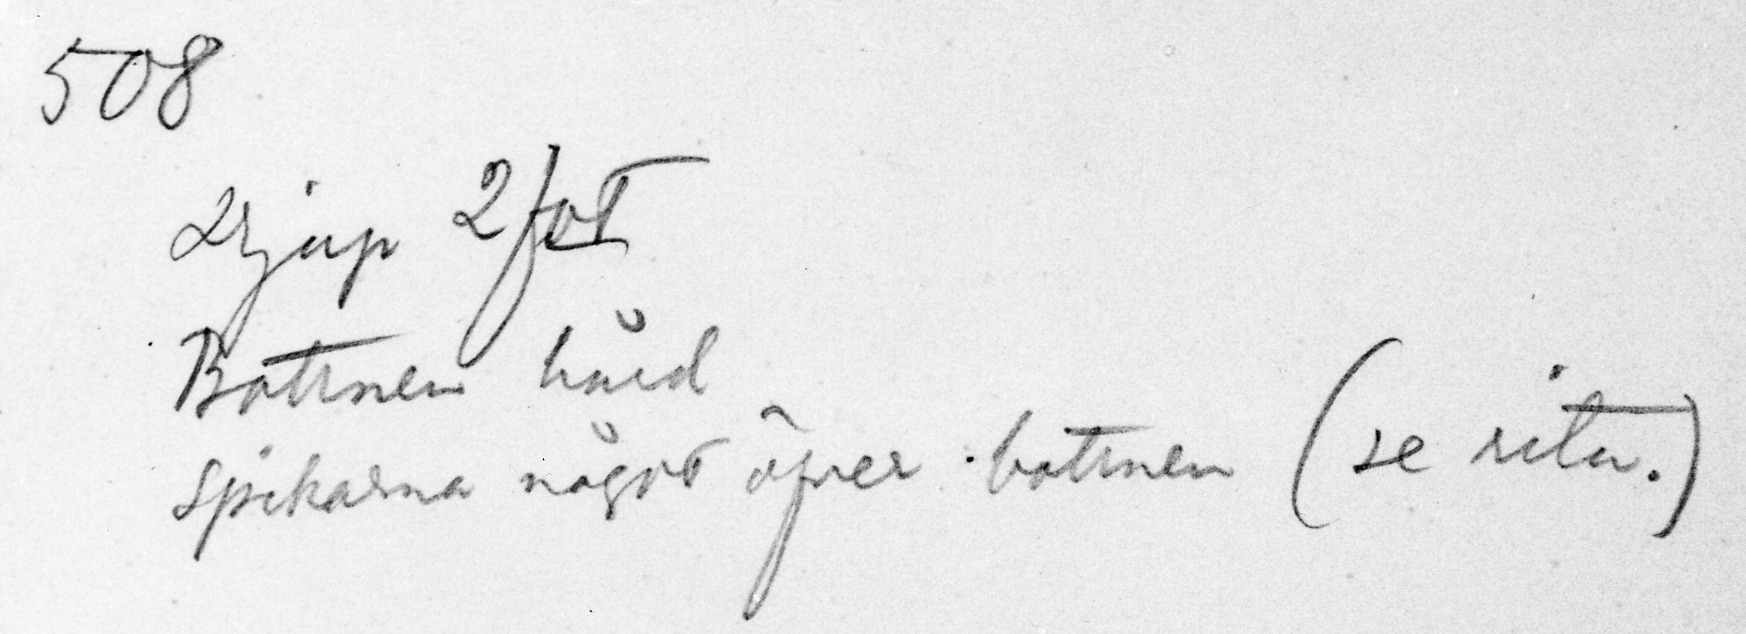 508
djup 2 fot
Bottnen hård
spikarna något öfver bottnen (se ritn.)